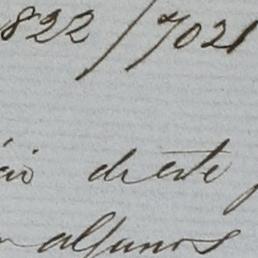 822/7021
deste
algunos